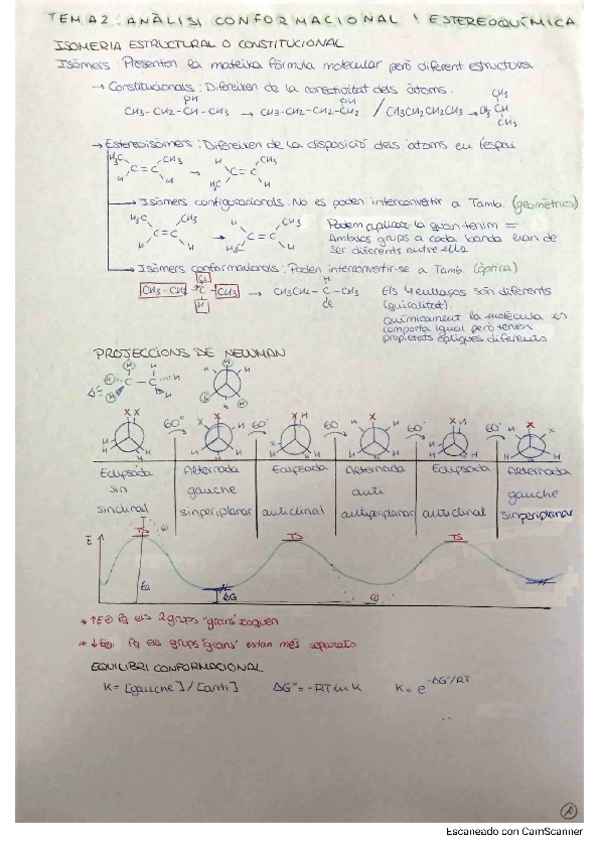 TEMA 2: ANÀLISI CONFORMACIONAL I ESTEREOQUÍMICA
ISOMERIA ESTRUCTURAL O CONSTITUCIONAL
Isòmers: Presenten la mateixa fórmula molecular però diferent estructura
→ Constitucionals: Difereixen de la conectivitat dels àtoms.
OH OH CH3
CH3-CH2-CH-CH3 → CH3-CH2-CH2-CH2 / CH3CH2CH2CH3 → CH3 CH
CH3
→ Estereoisòmers: Difereixen de la disposició dels àtoms en l'espai
H3C CH3 H CH3
C=C → C=C
H H H3C H
→ Isòmers configuracionals: No es poden interconvertir a Tamb. (geomètrics)
H3C CH3 H CH3 Podem aplicar-la quan tenim =
C=C → C=C Ambdós grups a cada banda han de
H H H3C H ser diferents entre ells
→ Isòmers conformacionals: Poden interconvertir-se a Tamb. (òptica)
Cl H
CH3-CH2 C CH3 → CH3CH2-C-CH3 Els 4 enllaços són diferents
H (quiralitat).
Químicament la molècula es
comporta igual però tenen
propietats òptiques diferents
PROJECCIONS DE NEWMAN
60° 60° 60 60° 60°
Eclipsada Alternada Eclipsada Alternada Eclipsada Alternada
sin gauche anti gauche
sinclinal sinperiplanar anticlinal antiperiplanar anticlinal sinperiplanar
E TS TS TS
Ea ΔG
→ ↑E Pq els 2 grups "grans" xoquen
→ ↓E Pq els grups "grans" estan més separats
EQUILIBRI CONFORMACIONAL
K=[gauche]/[anti] ΔG°=-RT ln K K=e^-ΔG°/RT
Escaneado con CamScanner